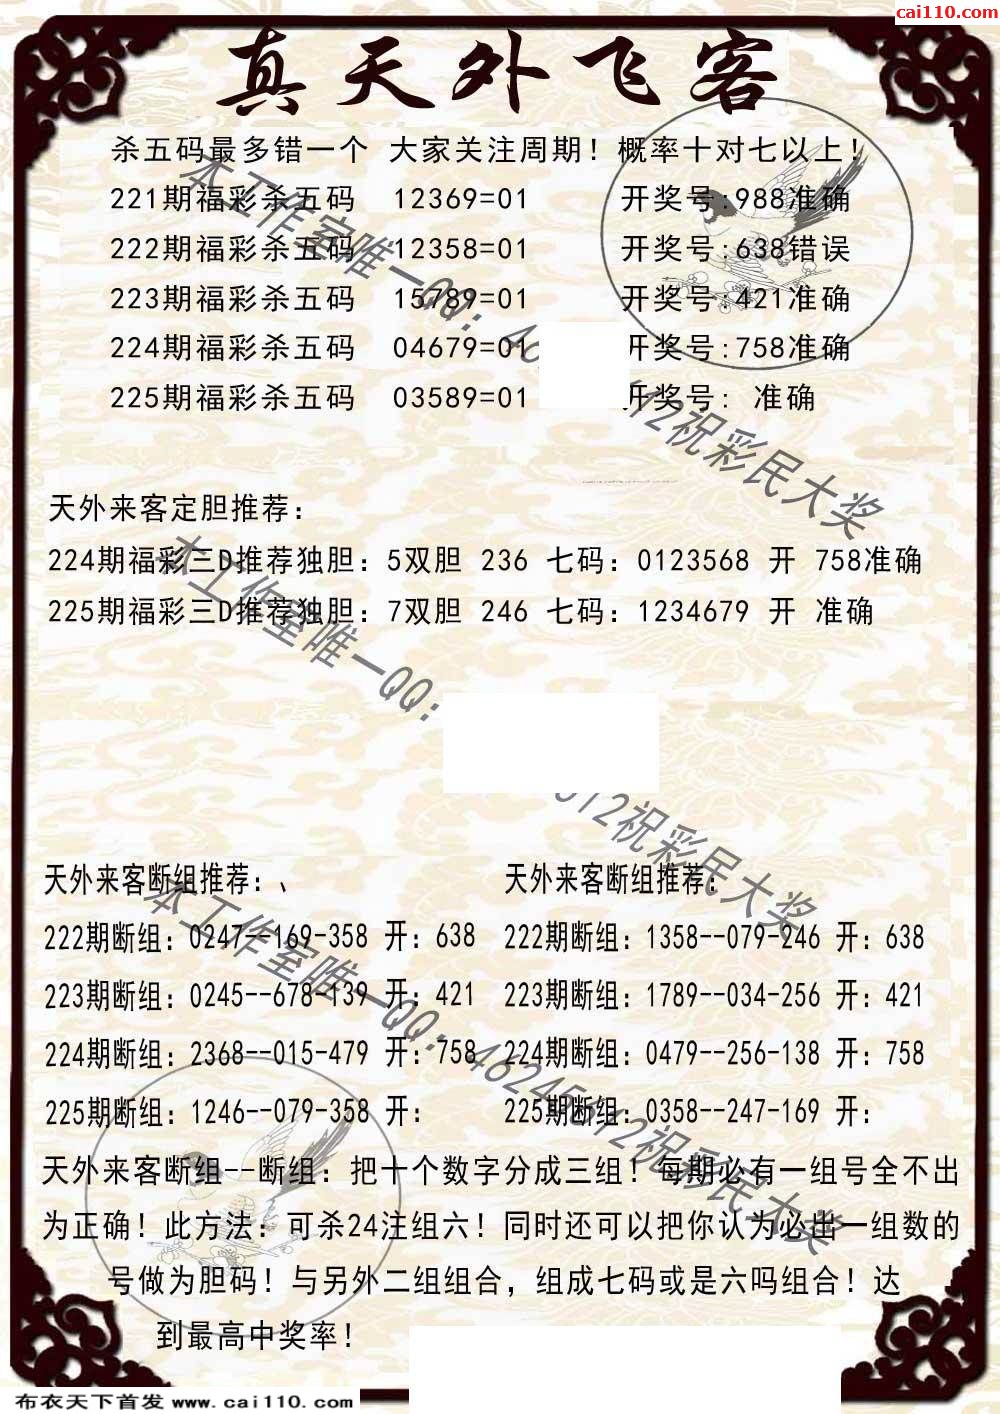 cai110.com
真天外飞客
杀五码最多错一个 大家关注周期！概率十对七以上！
221期福彩杀五码 12369=01 开奖号:988准确
222期福彩杀五码 12358=01 开奖号:638错误
223期福彩杀五码 15789=01 开奖号:421准确
224期福彩杀五码 04679=01 开奖号:758准确
225期福彩杀五码 03589=01 开奖号: 准确
本工作室唯一QQ：46 612祝彩民大奖
天外来客定胆推荐：
224期福彩三D推荐独胆：5双胆 236 七码：0123568 开 758准确
225期福彩三D推荐独胆：7双胆 246 七码：1234679 开 准确
本工作室唯一QQ： 612祝彩民大奖
天外来客断组推荐：、 天外来客断组推荐：
222期断组：0247--169-358 开：638 222期断组：1358--079-246 开：638
223期断组：0245--678-139 开：421 223期断组：1789--034-256 开：421
224期断组：2368--015-479 开：758 224期断组：0479--256-138 开：758
225期断组：1246--079-358 开： 225期断组：0358--247-169 开：
本工作室唯一QQ：46245612祝彩民大奖
天外来客断组--断组：把十个数字分成三组！每期必有一组号全不出
为正确！此方法：可杀24注组六！同时还可以把你认为必出一组数的
号做为胆码！与另外二组组合，组成七码或是六吗组合！达
到最高中奖率！
布衣天下首发 www.cai110.com